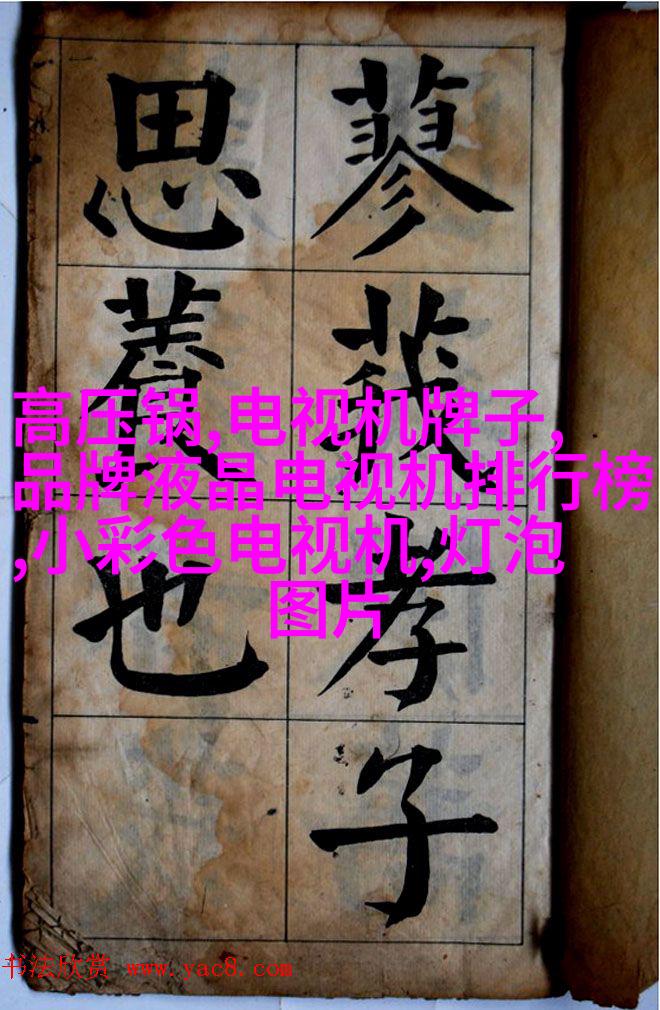 蓼莪孝子
思養也
高压锅,电视机牌子,
品牌液晶电视机排行榜
,小彩色电视机,灯泡
图片
书法欣赏 www.yac8.com